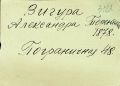 Вигура
Александра
1878.
Пограничну 48.